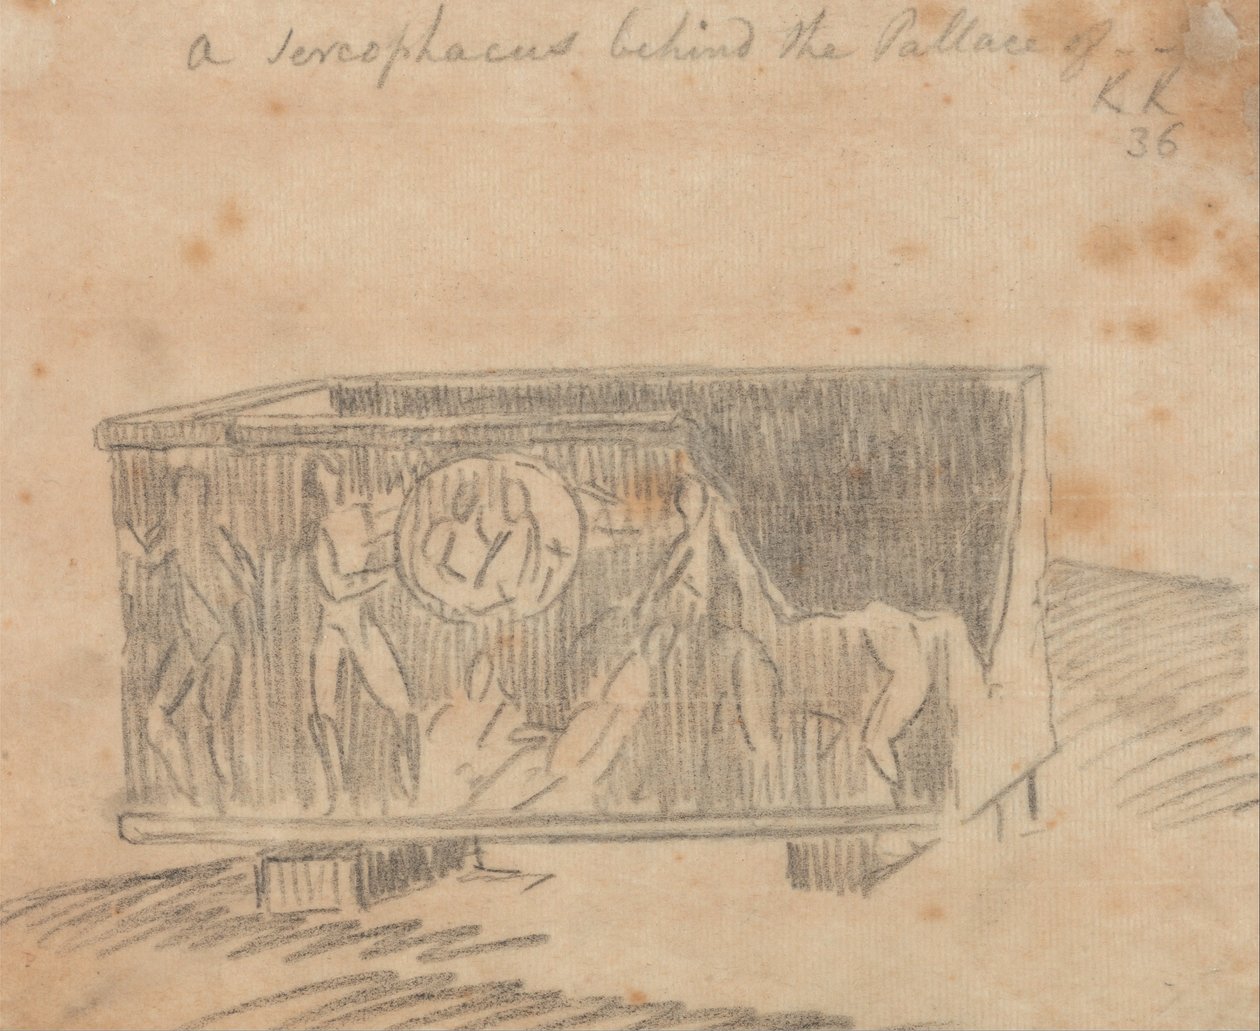 a sercophacus behind the Pallace of - -
R R
36